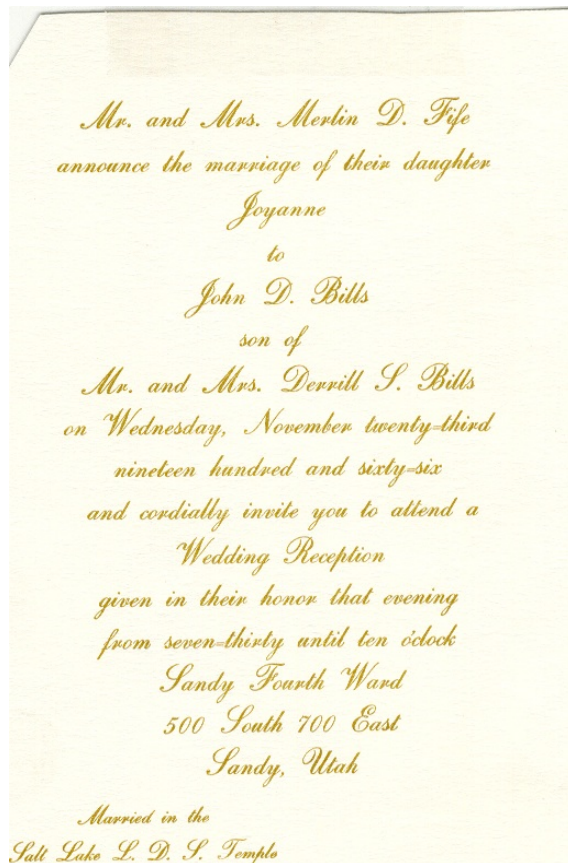 Mr. and Mrs. Merlin D. Fife
announce the marriage of their daughter
Joyanne
to
John D. Bills
son of
Mr. and Mrs. Derrill S. Bills
on Wednesday, November twenty-third
nineteen hundred and sixty-six
and cordially invite you to attend a
Wedding Reception
given in their honor that evening
from seven-thirty until ten o'clock
Sandy Fourth Ward
500 South 700 East
Sandy, Utah
Married in the
Salt Lake L. D. S. Temple